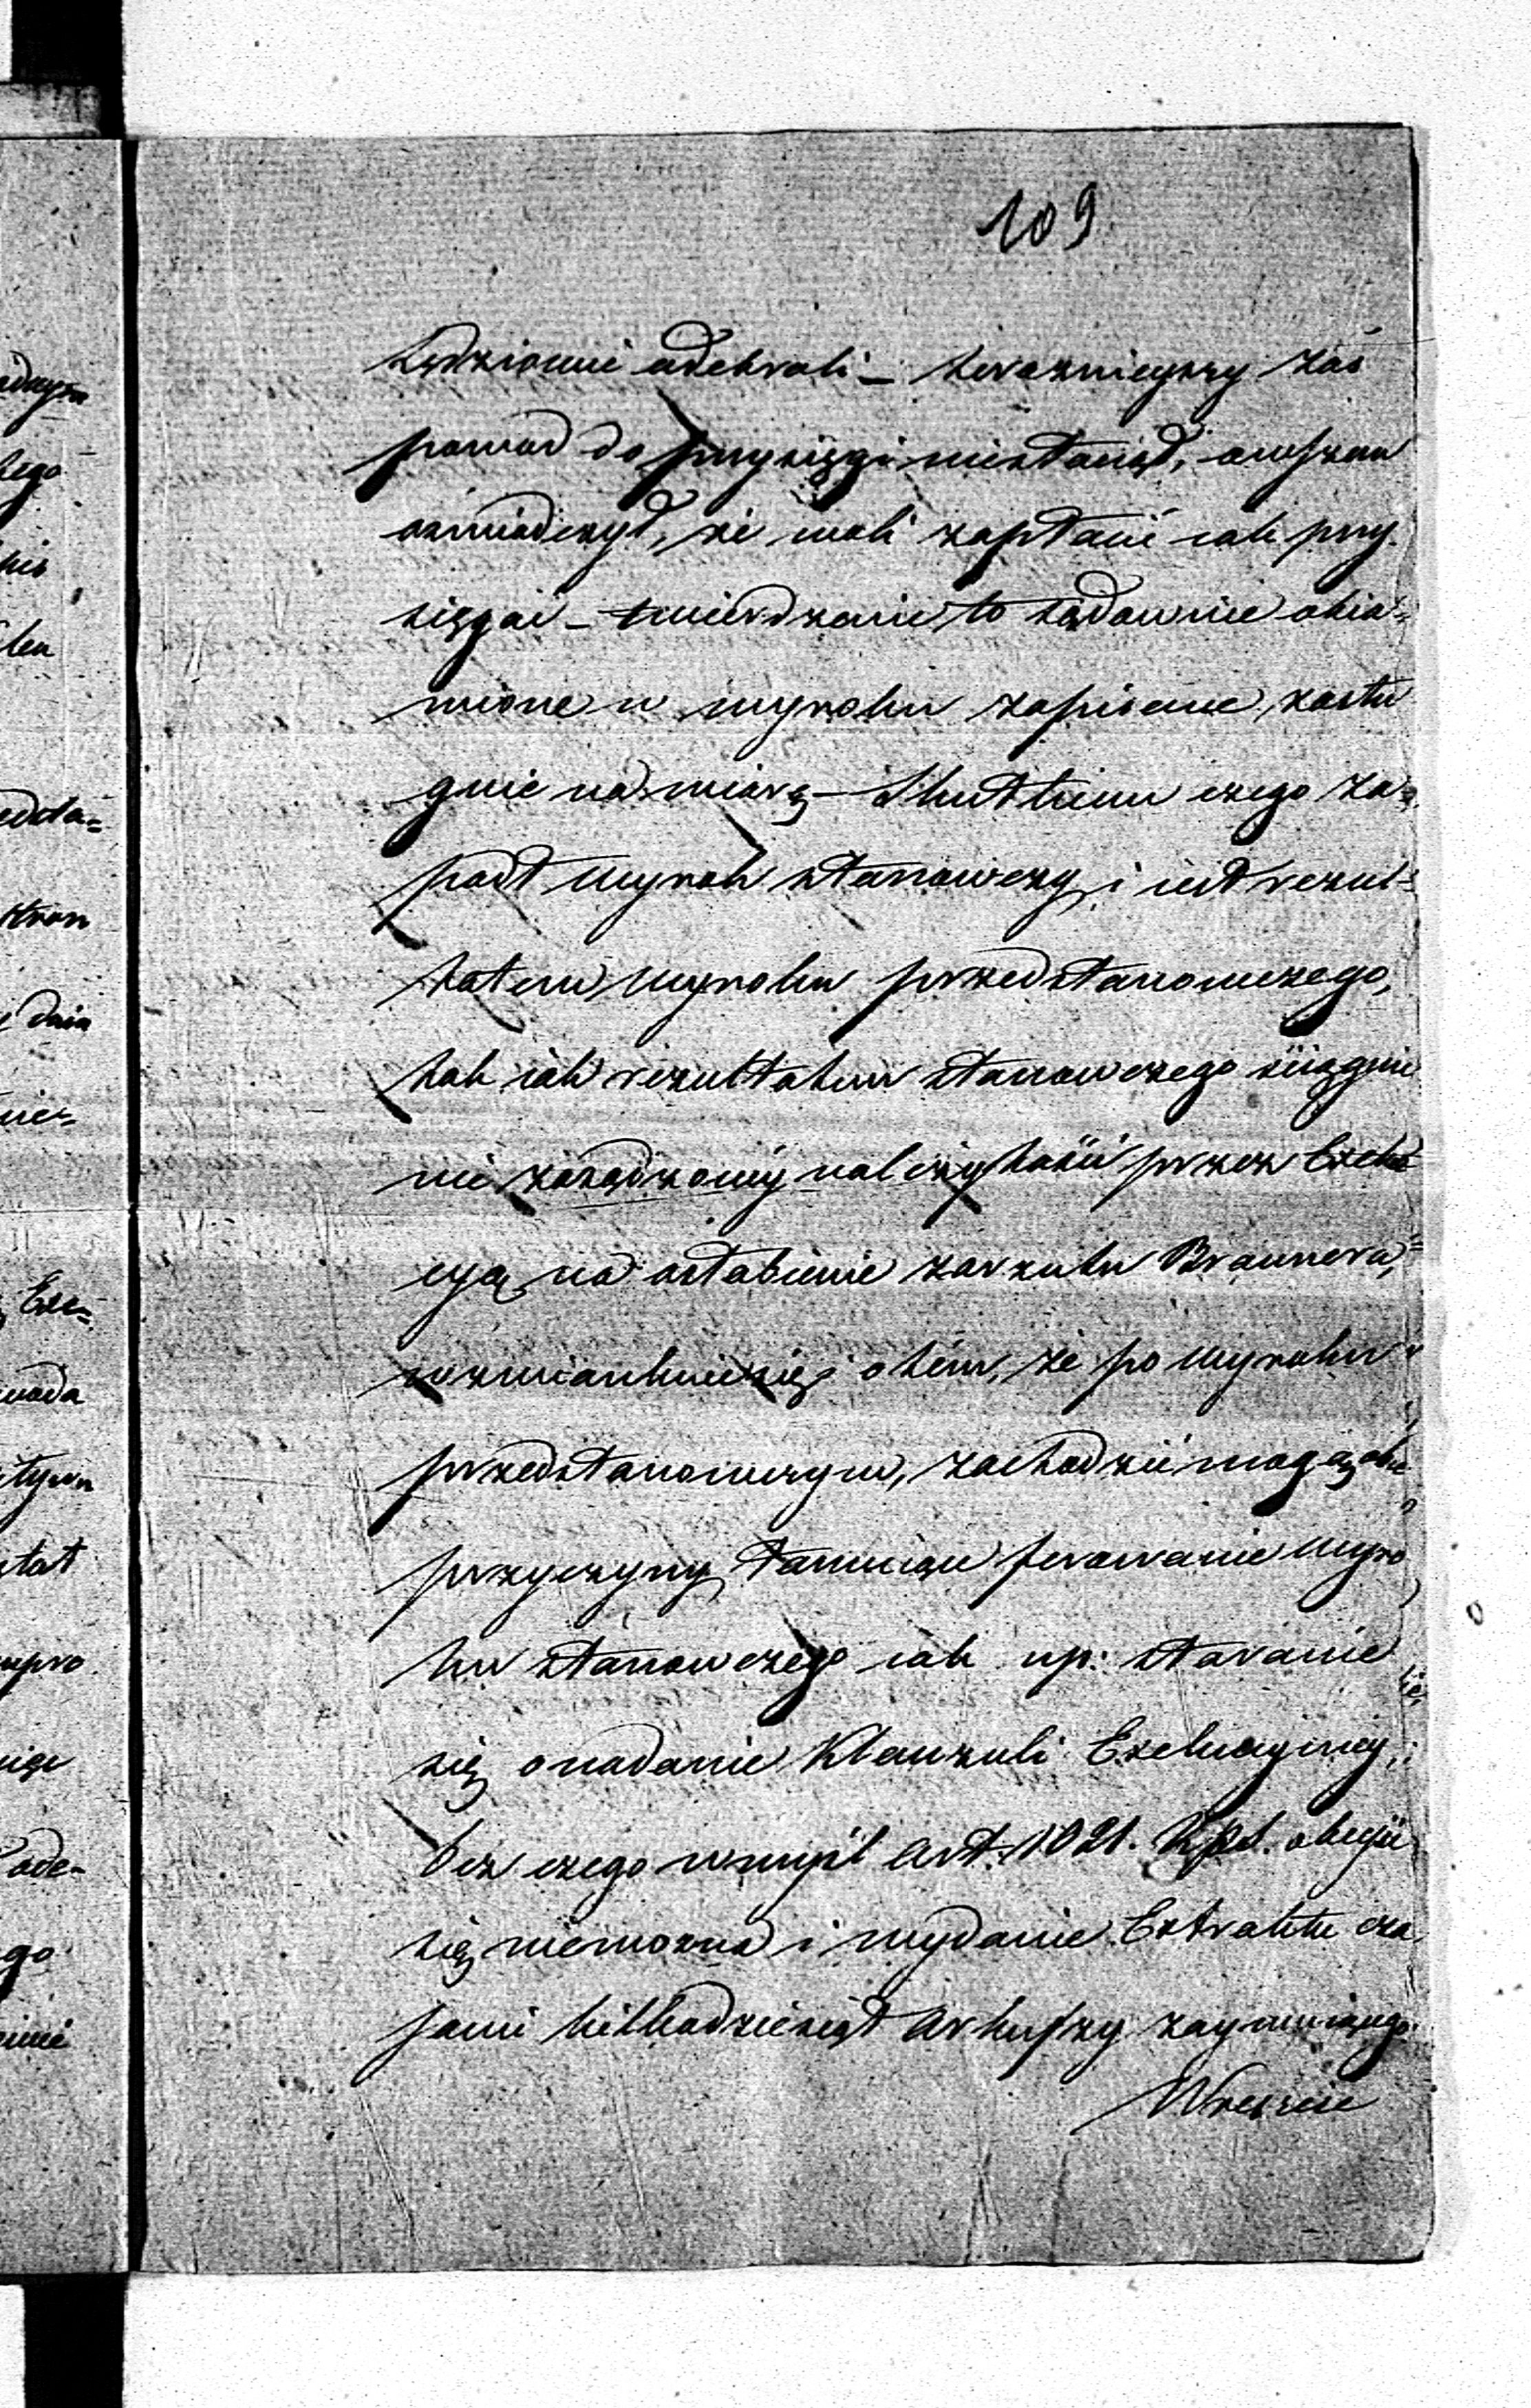 109
Sędziowie odebrali – teraznieyszy zaś
powod do przysięgi niestanął, owszem
oświadczył, że woli zapłacić iak przy-
sięgać – twierdzenie to sądownie obia-
wione w wyroku zapisane, zasłu
guie na wiarę – Skutkiem czego za-
padł wyrok stanowczy i iest rezul-
tatem wyroku przedstanowczego,
tak iak rezultatem stanowczego ściągnie
nie zasądzoney należytości przez Exeku
cyą na osłabienie zarzutu Braunera,
wzmiankuie się i o tém, że po wyroku
przedstanowczym, zachodzić mogą
przyczyny tamuiące ferowanie wyro
ku stanowczego iak np: staranie
się o nadanie Klauzuli Exekucyiney,
bez czego w myśl Art. 1021. K.P.S. obeyść
się niemożna i wydanie Extraktu cza
sami kilkadziesiąt Arkuszy zaymuiącego.
Wreszcie
idnym
tego
pis
edsta=
Kron
dnia
nie=
Exe=
wada
stat
ode-
go